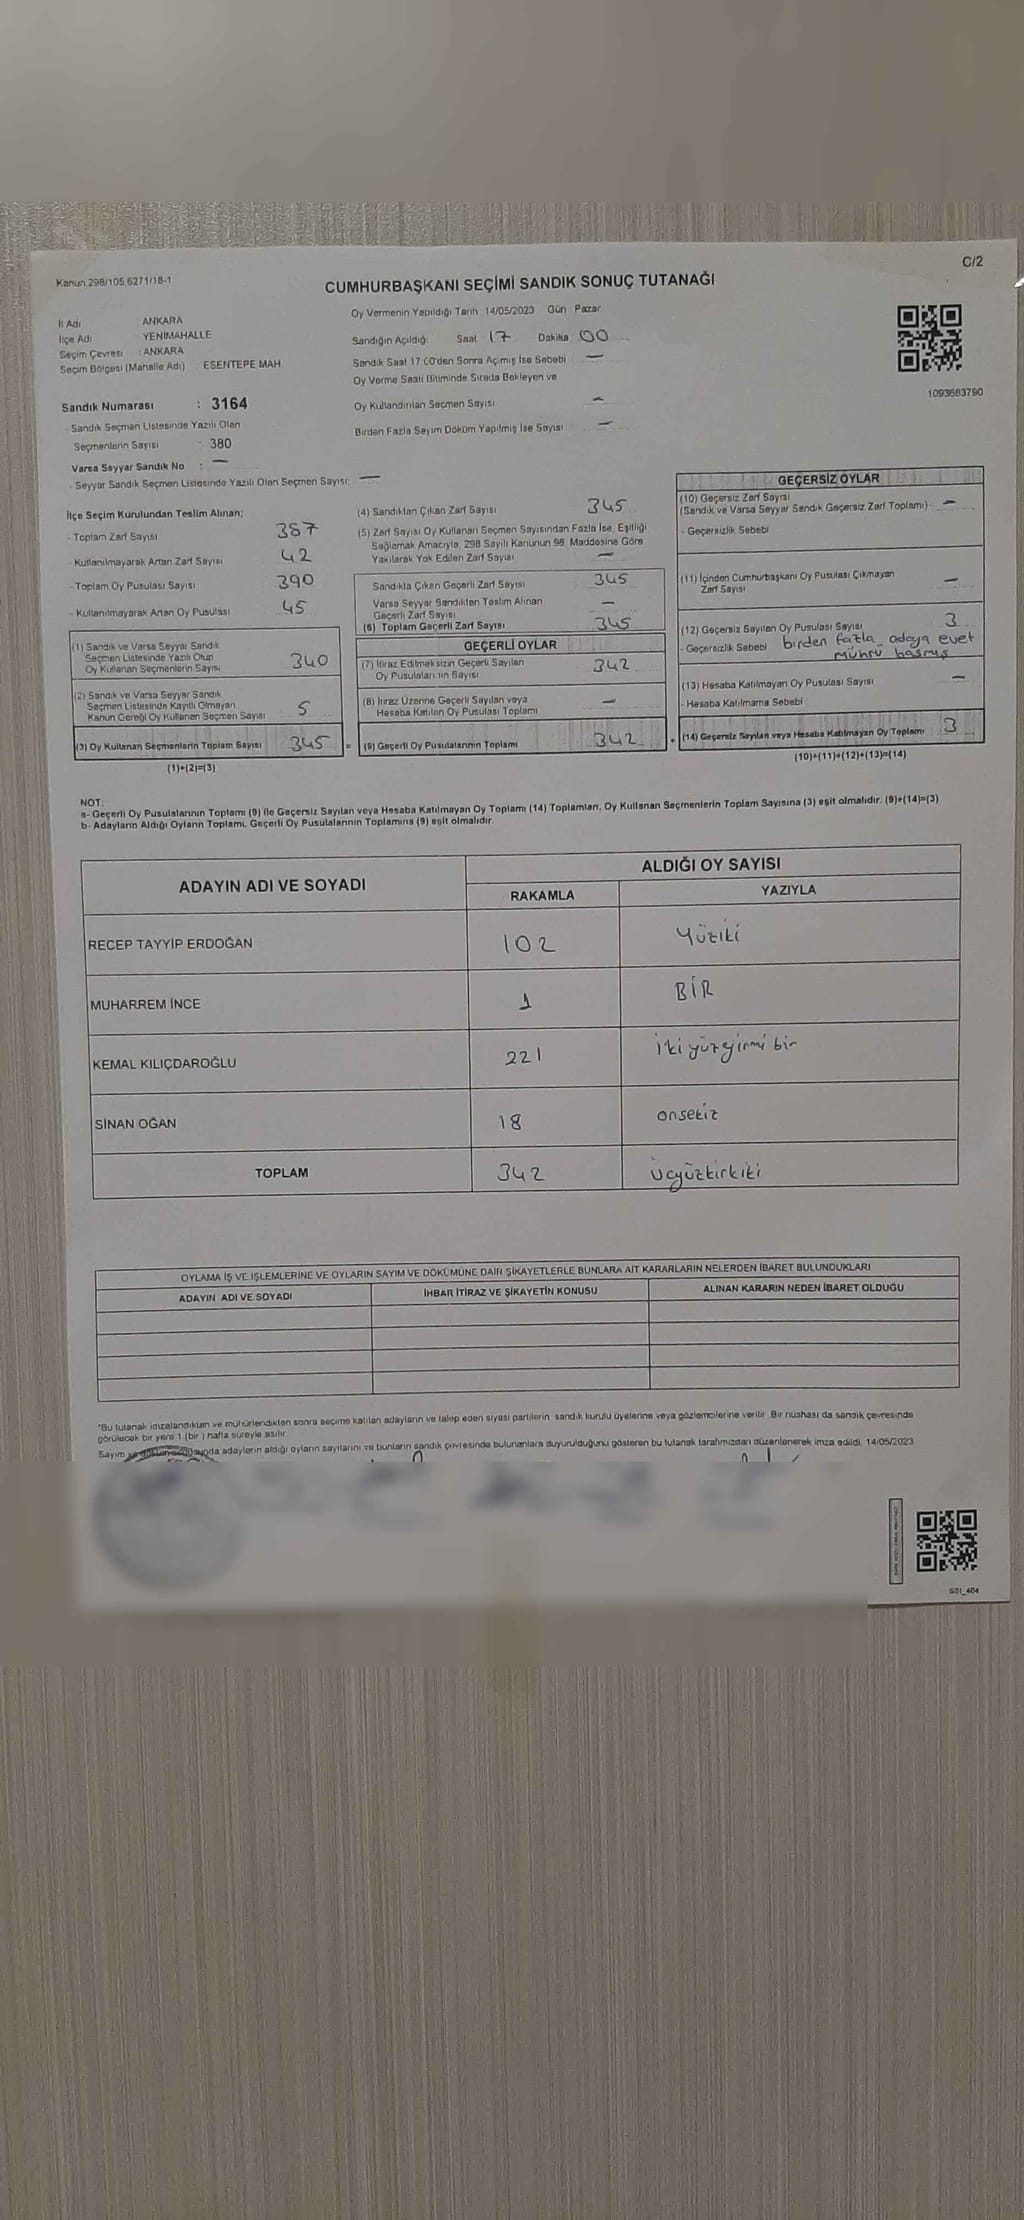 Kanun 298/105 6271/18-1
C/2
CUMHURBAŞKANI SEÇİMİ SANDIK SONUÇ TUTANAĞI
İl Adı ANKARA
İlçe Adı YENİMAHALLE
Seçim Çevresi : ANKARA
Seçim Bölgesi (Mahalle Adı) ESENTEPE MAH
Oy Vermenin Yapıldığı Tarih 14/05/2023 Gün Pazar
Sandığın Açıldığı Saat 17 Dakika 00
Sandık Saat 17.00'den Sonra Açılmış İse Sebebi —
Oy Verme Saati Bitiminde Sırada Bekleyen ve
Oy Kullandırılan Seçmen Sayısı —
Birden Fazla Sayım Döküm Yapılmış İse Sayısı —
1093683790
Sandık Numarası : 3164
- Sandık Seçmen Listesinde Yazılı Olan
Seçmenlerin Sayısı 380
Varsa Seyyar Sandık No : —
- Seyyar Sandık Seçmen Listesinde Yazılı Olan Seçmen Sayısı: —
İlçe Seçim Kurulundan Teslim Alınan;
- Toplam Zarf Sayısı 387
- Kullanılmayarak Artan Zarf Sayısı 42
- Toplam Oy Pusulası Sayısı 390
- Kullanılmayarak Artan Oy Pusulası 45
(1) Sandık ve Varsa Seyyar Sandık
Seçmen Listesinde Yazılı Olup
Oy Kullanan Seçmenlerin Sayısı 340
(2) Sandık ve Varsa Seyyar Sandık
Seçmen Listesinde Kayıtlı Olmayan
Kanun Gereği Oy Kullanan Seçmen Sayısı 5
(3) Oy Kullanan Seçmenlerin Toplam Sayısı 345 =
(1)+(2)=(3)
(4) Sandıktan Çıkan Zarf Sayısı 345
(5) Zarf Sayısı Oy Kullanan Seçmen Sayısından Fazla İse, Eşitliği
Sağlamak Amacıyla, 298 Sayılı Kanunun 98. Maddesine Göre
Yakılarak Yok Edilen Zarf Sayısı —
Sandıkta Çıkan Geçerli Zarf Sayısı 345
Varsa Seyyar Sandıktan Teslim Alınan
Geçerli Zarf Sayısı —
(6) Toplam Geçerli Zarf Sayısı 345
GEÇERLİ OYLAR
(7) İtiraz Edilmeksizin Geçerli Sayılan
Oy Pusulalarının Sayısı 342
(8) İtiraz Üzerine Geçerli Sayılan veya
Hesaba Katılan Oy Pusulası Toplamı —
(9) Geçerli Oy Pusulalarının Toplamı 342 +
GEÇERSİZ OYLAR
(10) Geçersiz Zarf Sayısı
(Sandık ve Varsa Seyyar Sandık Geçersiz Zarf Toplamı) —
- Geçersizlik Sebebi
(11) İçinden Cumhurbaşkanı Oy Pusulası Çıkmayan
Zarf Sayısı —
(12) Geçersiz Sayılan Oy Pusulası Sayısı 3
- Geçersizlik Sebebi birden fazla adaya evet
mührü basmış
(13) Hesaba Katılmayan Oy Pusulası Sayısı —
- Hesaba Katılmama Sebebi
(14) Geçersiz Sayılan veya Hesaba Katılmayan Oy Toplamı 3
(10)+(11)+(12)+(13)=(14)
NOT:
a- Geçerli Oy Pusulalarının Toplam (9) ile Geçersiz Sayılan veya Hesaba Katılmayan Oy Toplamı (14) Toplamları, Oy Kullanan Seçmenlerin Toplam Sayısına (3) eşit olmalıdır. (9)+(14)=(3)
b- Adayların Aldığı Oyların Toplamı, Geçerli Oy Pusulalarının Toplamına (9) eşit olmalıdır.
ADAYIN ADI VE SOYADI
ALDIĞI OY SAYISI
RAKAMLA YAZIYLA
RECEP TAYYİP ERDOĞAN 102 Yüziki
MUHARREM İNCE 1 BİR
KEMAL KILIÇDAROĞLU 221 İkiyüzyirmi bir
SİNAN OĞAN 18 onsekiz
TOPLAM 342 üçyüzkırkiki
OYLAMA İŞ VE İŞLEMLERİNE VE OYLARIN SAYIM VE DÖKÜMÜNE DAİR ŞİKAYETLERLE BUNLARA AİT KARARLARIN NELERDEN İBARET BULUNDUKLARI
ADAYIN ADI VE SOYADI İHBAR İTİRAZ VE ŞİKAYETİN KONUSU ALINAN KARARIN NEDEN İBARET OLDUĞU
*Bu tutanak imzalandıktan ve mühürlendikten sonra seçime katılan adayların ve talep eden siyasi partilerin sandık kurulu üyelerine veya gözlemcilerine verilir. Bir nüshası da sandık çevresinde
görülecek bir yere 1 (bir) hafta süreyle asılır.
Sayım ve adayların aldığı oyların sayılarını ve bunların sandık çevresinde bulunanlara duyurulduğunu gösteren bu tutanak tarafımızdan düzenlenerek imza edildi. 14/05/2023
SSI_404